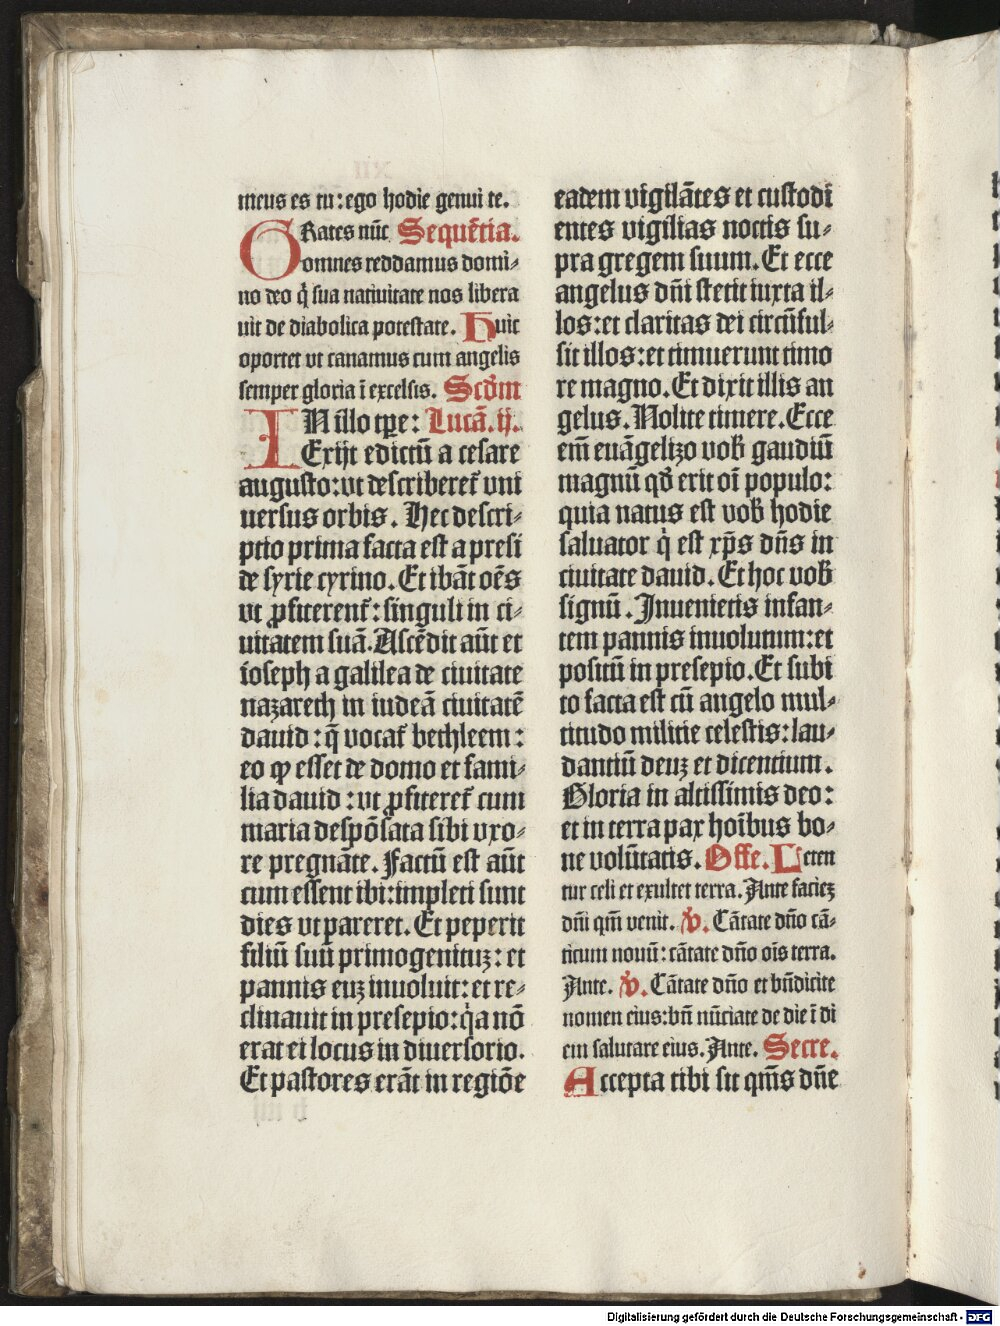 meus es tu: ego hodie genui te.
GRates nūc Sequētia.
omnes reddamus domi⸗
no deo q̇ sua natiuitate nos libera
uit de diabolica potestate. Huic
oportet vt canamus cum angelis
semper gloria ī excelsis. Scd̄m
IN illo tp̄e: Lucā. ij.
Exijt edictū a cesare
augusto: vt describeret᷑ vni
uersus orbis. Hec descri⸗
ptio prima facta est a presi
de syrie cyrino. Et ibāt oēs
vt ꝓfiterent᷑: singuli in ci⸗
uitatem suā. Ascēdit aūt et
ioseph a galilea de ciuitate
nazareth in iudeā ciuitatē
dauid: q̄ vocat᷑ bethleem:
eo ꝙ esset de domo et fami⸗
lia dauid: vt ꝓfiteret᷑ cum
maria despōsata sibi vxo⸗
re pregnāte. Factū est aūt
cum essent ibi: impleti sunt
dies vt pareret. Et peperit
filiū suū primogenituꝫ: et
pannis euꝫ inuoluit: et re⸗
clinauit in presepio: q̇a nō
erat ei locus in diuersorio.
Et pastores erāt in regiōe
eadem vigilātes et custodi
entes vigilias noctis su⸗
pra gregem suum. Et ecce
angelus dn̄i stetit iuxta il⸗
los: et claritas dei circūful⸗
sit illos: et timuerunt timo
re magno. Et dixit illis an
gelus. Nolite timere. Ecce
em̄ euāgelizo vob̄ gaudiū
magnū qd̄ erit oī populo:
quia natus est vob̄ hodie
saluator q̇ est xp̄s dn̄s in
ciuitate dauid. Et hoc vob̄
signū. Inuenietis infan⸗
tem pannis inuolutum: et
positū in presepio. Et subi
to facta est cū angelo mul⸗
titudo militie celestis: lau⸗
dantiū deuꝫ et dicentium.
Gloria in altissimis deo:
et in terra pax hoībus bo⸗
ne volūtatis. Offe. Leten
tur celi et exultet terra. Ante facieꝫ
dn̄i qm̄ venit. v̇. Cātate dn̄o cā⸗
ticum nouū: cātate dn̄o oīs terra.
Ante. v̇. Cātate dn̄o et bn̄dicite
nomen eius: bn̄ nūciate de die ī di
em salutare eius. Ante. Secre.
Accepta tibi sit qm̄s dn̄e
Digitalisierung gefördert durch die Deutsche Forschungsgemeinschaft - DFG